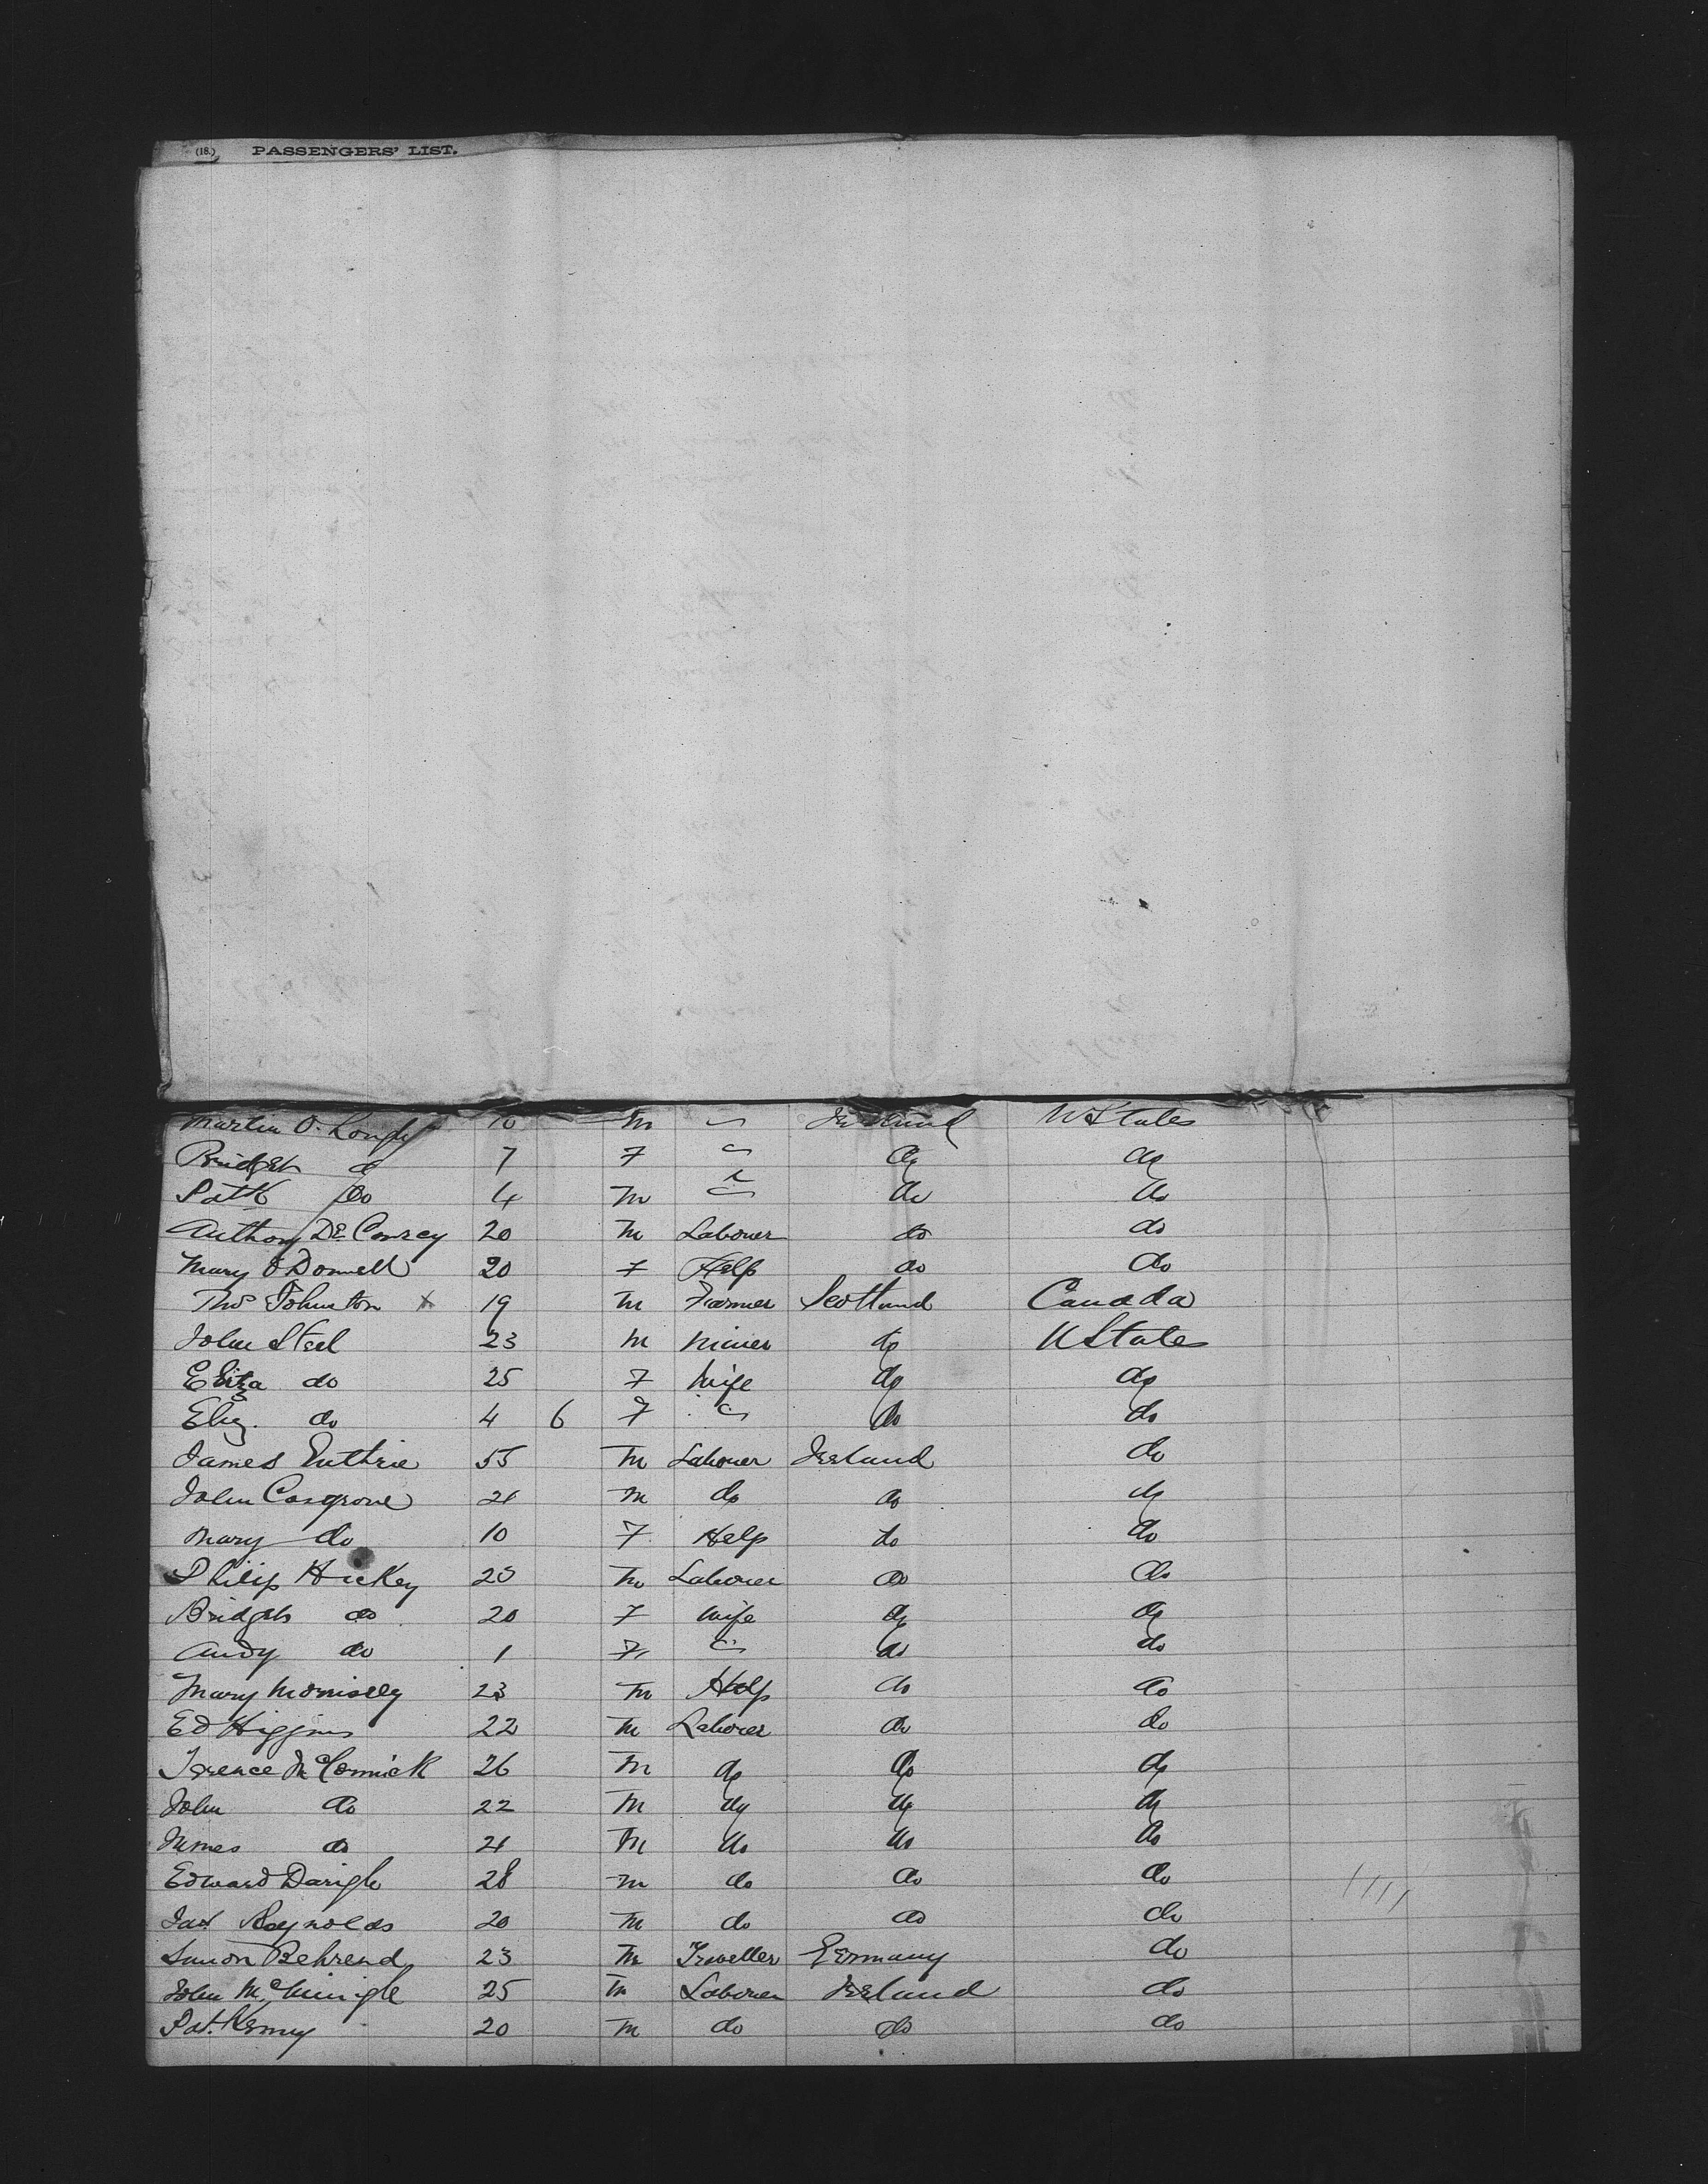 (18.) PASSENGERS' LIST.
Martin O. 10 m Ireland U States
Bridget do 7 F do do
Patk do 4 m do do
Anthony De Courcy 20 m Labourer do do
Mary O'Donnell 20 F Help do do
Thos Johnston x 19 m Farmer Scotland Canada
John Steel 23 m Miner do U States
Eliza do 25 F Wife do do
Eliz. do 4 6 F do do
James Guthrie 55 m Labourer Ireland do
John Cosgrove 21 m do do do
Mary do 10 F Help do do
Philip Hickey 25 m Labourer do do
Bridget do 20 F Wife do do
Andy do 1 F do do
Mary Morrissey 23 m Help do do
Ed Higgins 22 m Labourer do do
Terence McCormick 26 m do do do
John do 22 m do do do
James do 21 m do do do
Edward 28 m do do do
Jas Reynolds 20 m do do do
Simon Behrend 23 m Germany do
John 25 m Labourer Ireland do
Pat. Kenny 20 m do do do